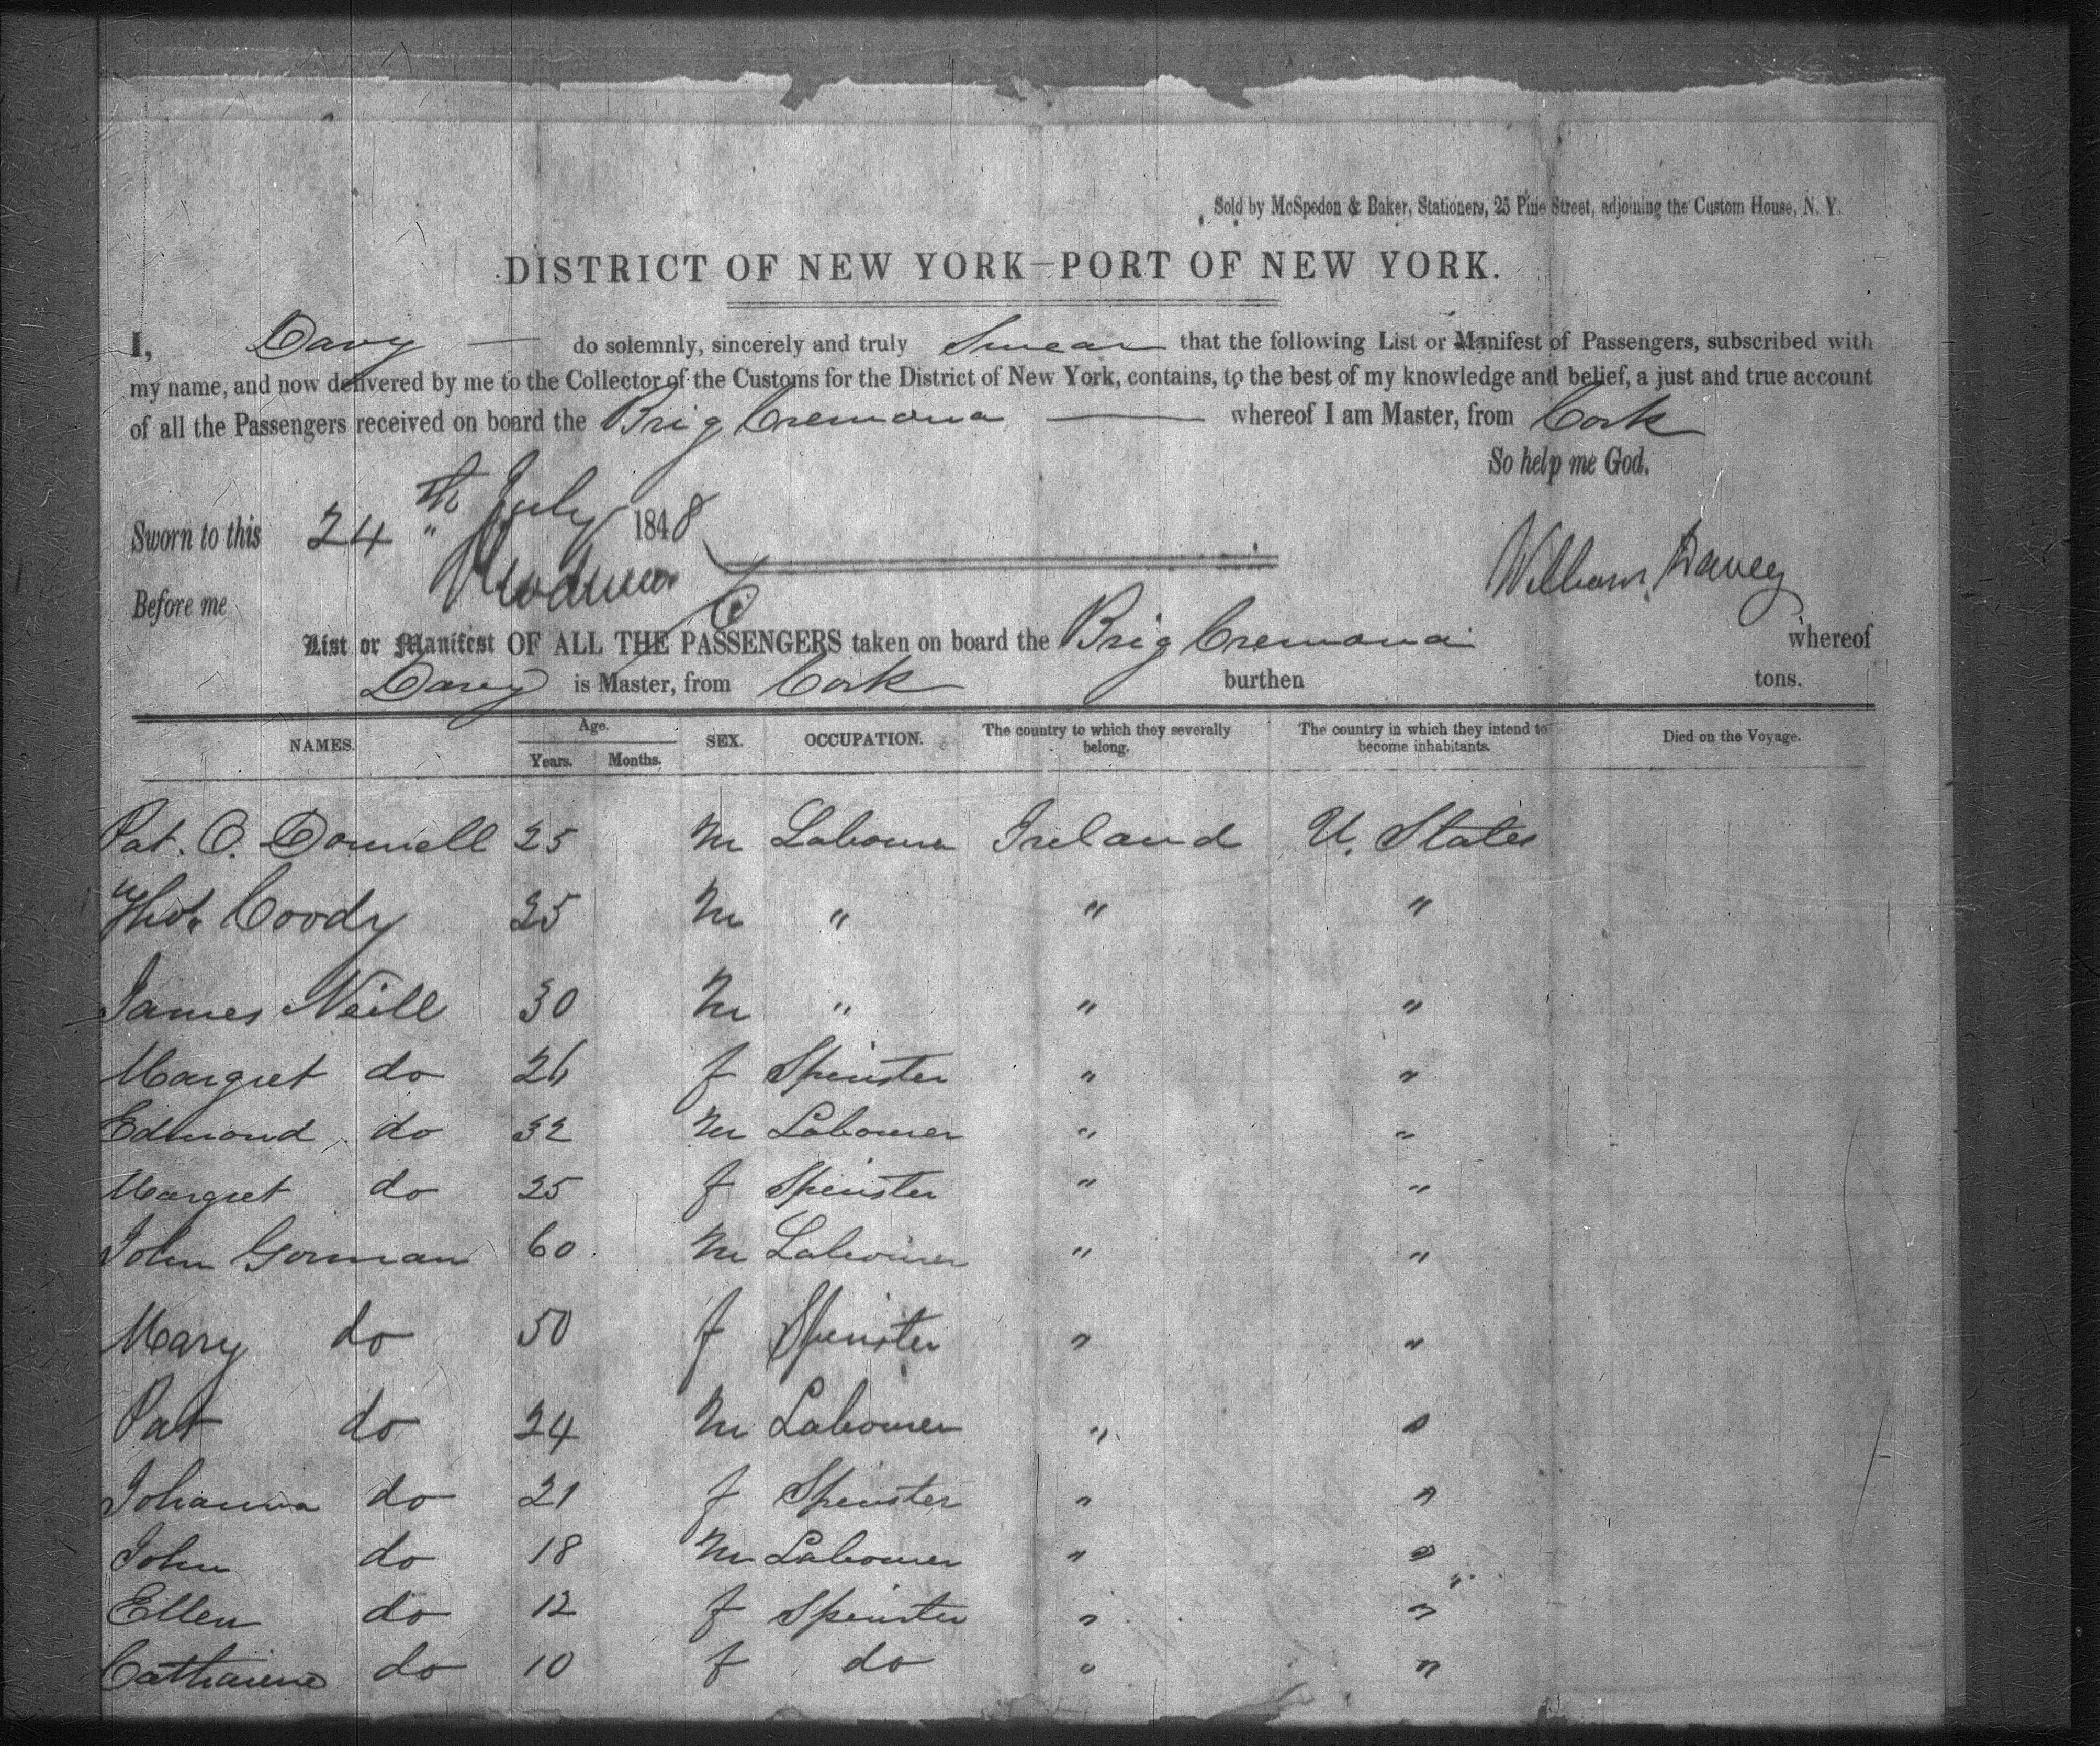 Sold by McSpedon & Baker, Stationers, 25 Pine Street, adjoining the Custom House, N. Y.
DISTRICT OF NEW YORK—PORT OF NEW YORK.
I, Davy — do solemnly, sincerely and truly Swear that the following List or Manifest of Passengers, subscribed with
my name, and now delivered by me to the Collector of the Customs for the District of New York, contains, to the best of my knowledge and belief, a just and true account
of all the Passengers received on board the Brig Cremona — whereof I am Master, from Cork
So help me God.
Sworn to this 24 th July 1848
Before me
William Davey
List or Manifest OF ALL THE PASSENGERS taken on board the Brig Cremona whereof
Davey is Master, from Cork burthen tons.
NAMES. Age. Years. Months. SEX. OCCUPATION. The country to which they severally belong. The country in which they intend to become inhabitants. Died on the Voyage.
Pat. O. Donnell 25 M Labourer Ireland U. States
Thos Coody 25 M " " "
James Neill 30 M " " "
Margret do 26 f Spinster " "
Edmond do 32 M Labourer " "
Margret do 25 f Spinster " "
John Gorman 60 M Labourer " "
Mary do 50 f Spinster " "
Pat do 24 M Labourer " "
Johanna do 21 f Spinster " "
John do 18 M Labourer " "
Ellen do 12 f Spinster " "
Catharine do 10 f do " "